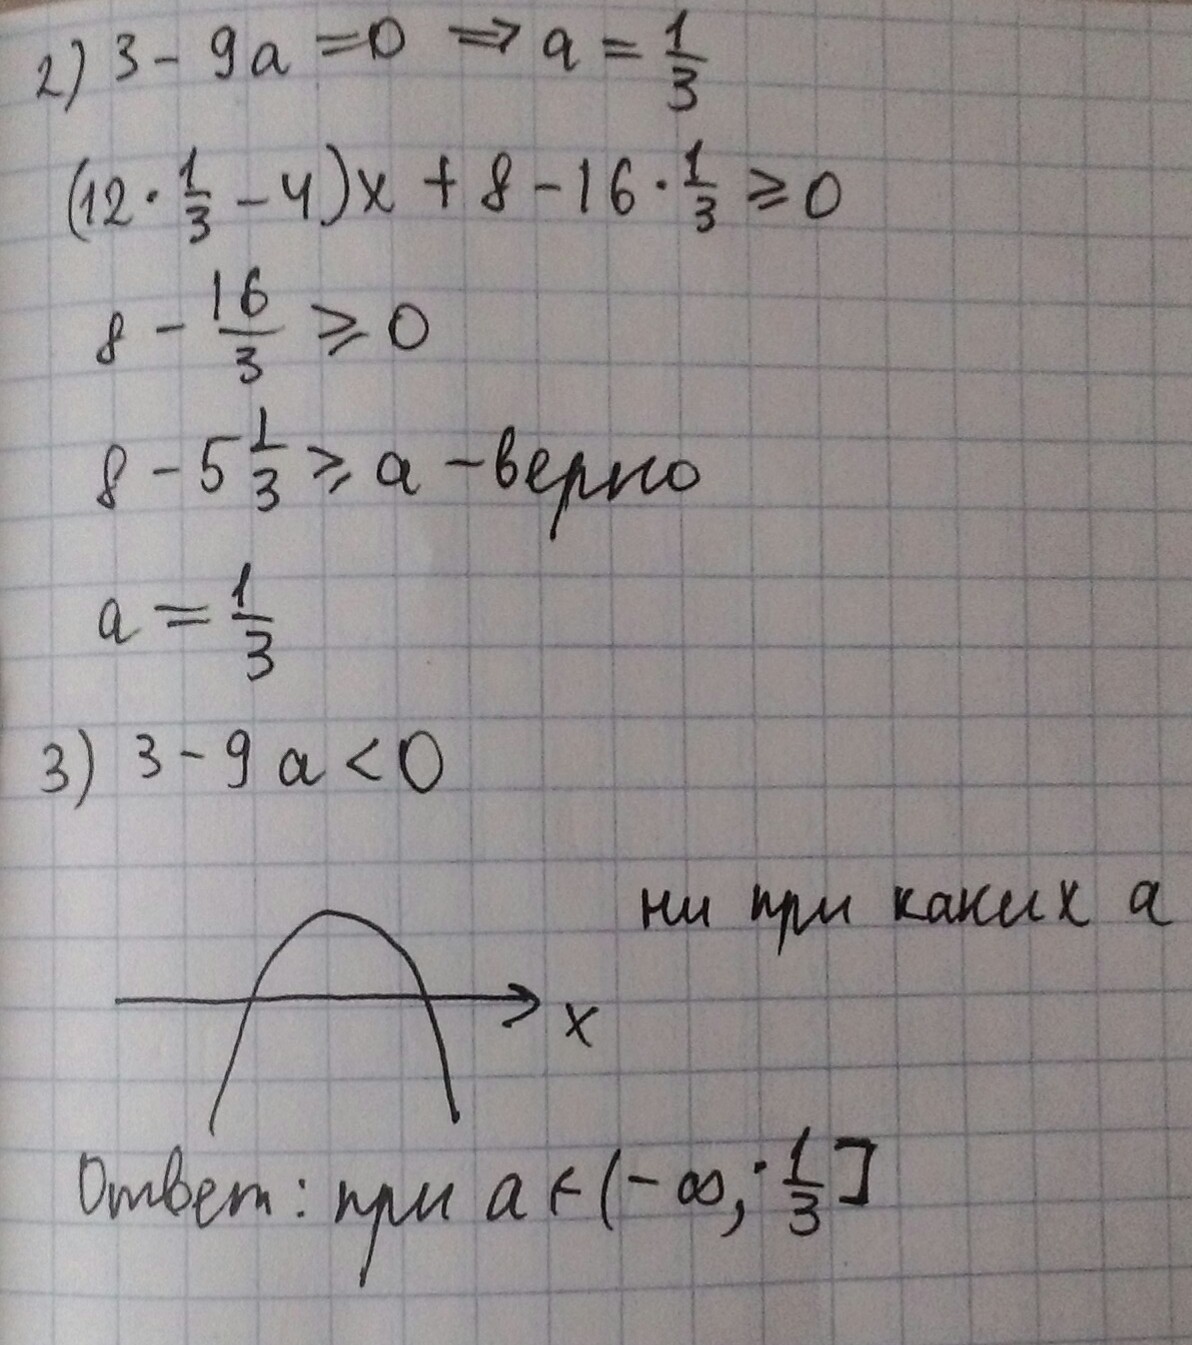 2) 3 - 9a = 0 ⇒ a = 1/3
(12 · 1/3 - 4)x + 8 - 16 · 1/3 ⩾ 0
8 - 16/3 ⩾ 0
8 - 5 1/3 ⩾ a - верно
a = 1/3
3) 3 - 9a < 0
ни при каких a
x
Ответ: при a ∈ (-∞; 1/3]